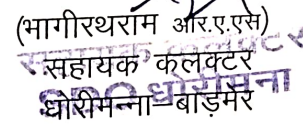 (भागीरथराम आर.ए.एस)
सहायक कलक्टर
धोरीमन्ना–बाड़मेर